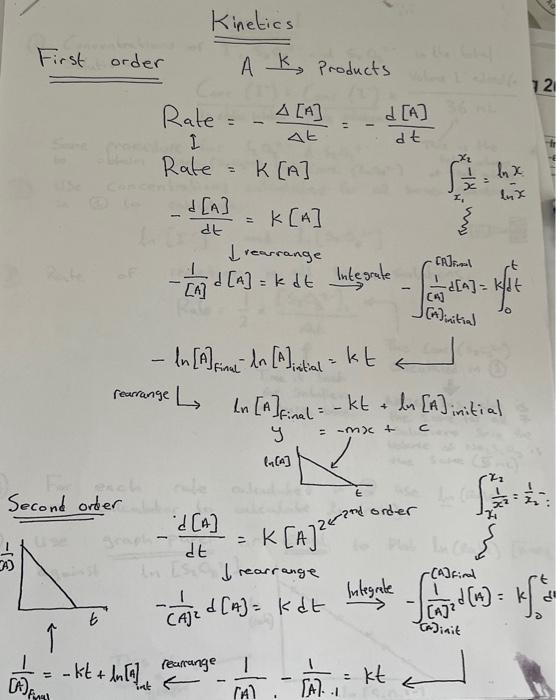 Kinetics
First order
A K→ Products
Rate = - Δ[A]/Δt = - d[A]/dt
Rate = K[A]
∫x₁^x₂ 1/x = ln x - ln x
- d[A]/dt = K[A]
↓ rearrange
- 1/[A] d[A] = k dt Integrate → - ∫[A]initial^[A]Final 1/[A] d[A] = k∫₀^t dt
- ln[A]Final - ln[A]initial = kt
rearrange → ln[A]final = -kt + ln[A]initial
y = -mx + c
ln[A]
t
∫x₁^x₂ 1/x² = 1/x₂ -
Second order
- d[A]/dt = K[A]² ← 2nd order
1/[A]
t
↓ rearrange
- 1/[A]² d[A] = k dt Integrate → - ∫[A]init^[A]final 1/[A]² d[A] = k∫₀^t d
1/[A]Final = -kt + ln[A]int ← rearrange - 1/[A] - 1/[A] = kt